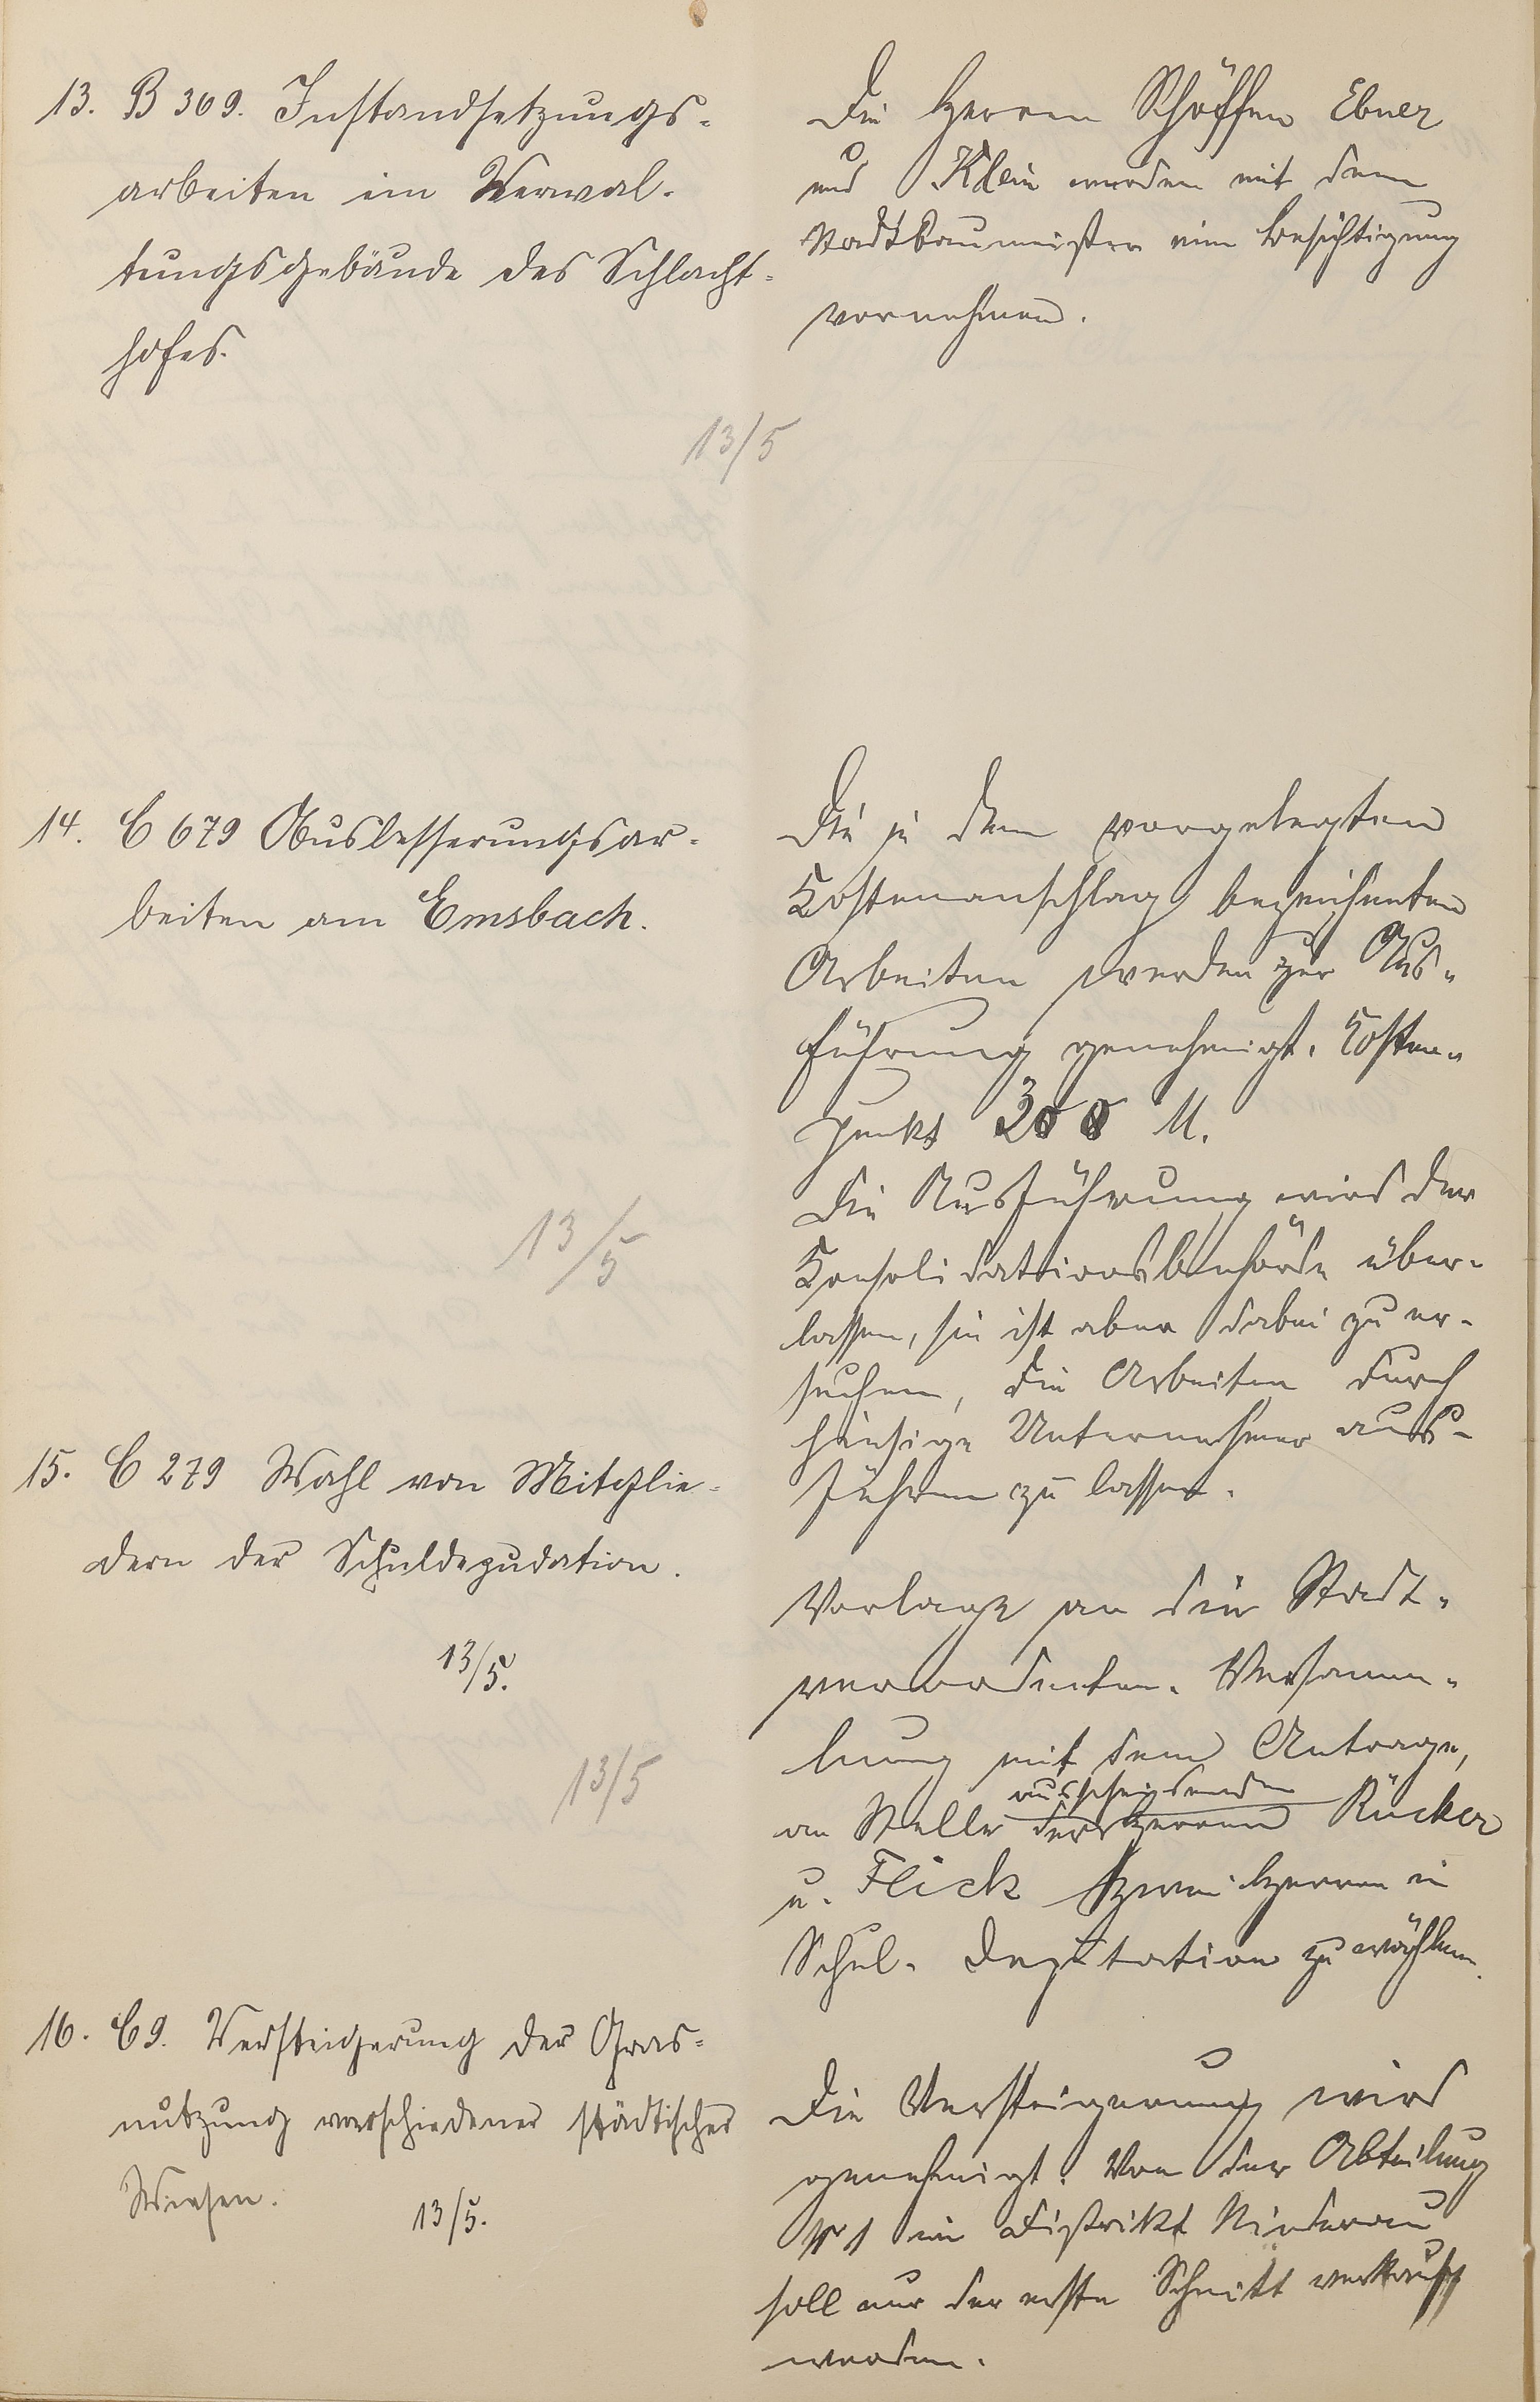 13. B 369. Instandsetzungs-
arbeiten im Verwal-
tungsgebäude des Schlacht-
hofes.
Die Herren Schöffen Ebner
und Klein werden mit dem
Stadtbaumeister eine Besichtigung
vornehmen.
13/5
14. C 679 Ausbesserungsar-
beiten am Emsbach.
Die in dem vorgelegten
Kostenanschlag bezeichneten
Arbeiten werden zur Aus-
führung genehmigt. Kosten-
punkt 300 M.
Die Ausführung wird der
Konsolidationsbehörde über-
lassen, sie ist aber dabei zu er-
suchen, die Arbeiten durch
hiesige Unternehmer aus-
führen zu lassen.
13/5
15. C 279 Wahl von Mitglie-
dern der Schuldeputation.
13/5.
13/5
Vorlage an die Stadt-
verordneten-Versamm-
lung mit dem Antrage,
ausscheidenden
an Stelle der Herren Rücker
u. Flick zwei Herren in
Schul-Deputation zu wählen.
16. C 9. Versteigerung der Gras-
nutzung verschiedener städtischer
Wiesen.
13/5.
Die Versteigerung wird
genehmigt. Von der Abteilung
Nr 1 im Distrikt Niederau
soll nur der erste Schnitt verkauft
werden.